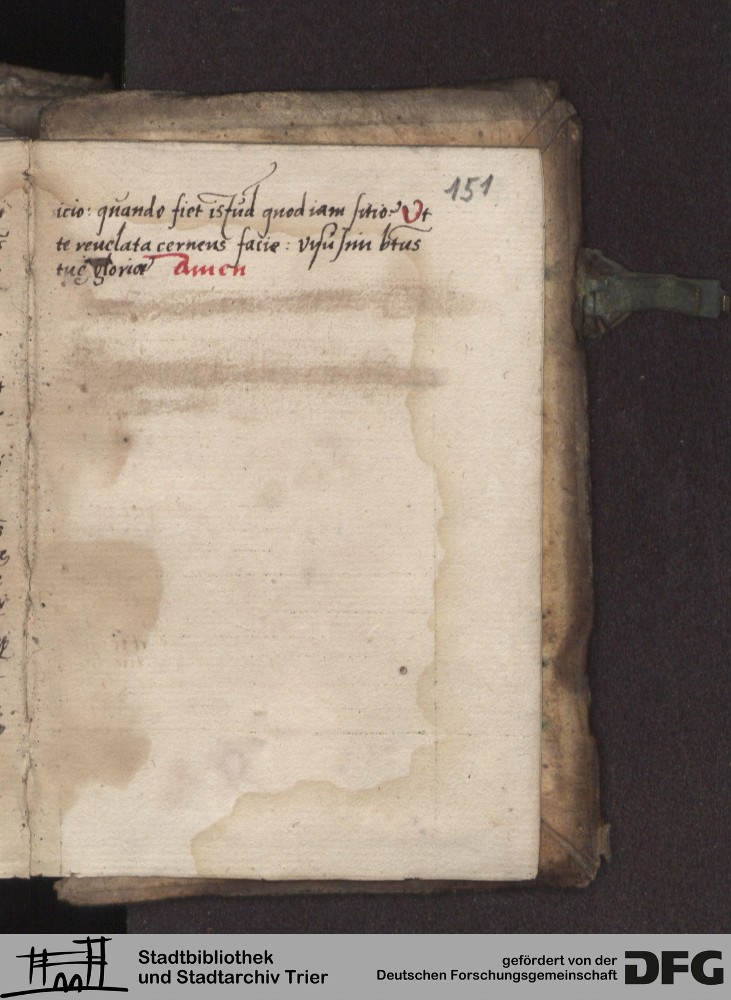 151
icio: quando fiet istud quod iam sitio? Ut
te reuelata cernens facie: visu sim btus
tuę gloriæ Amen
Stadtbibliothek
und Stadtarchiv Trier
gefördert von der
Deutschen Forschungsgemeinschaft
DFG